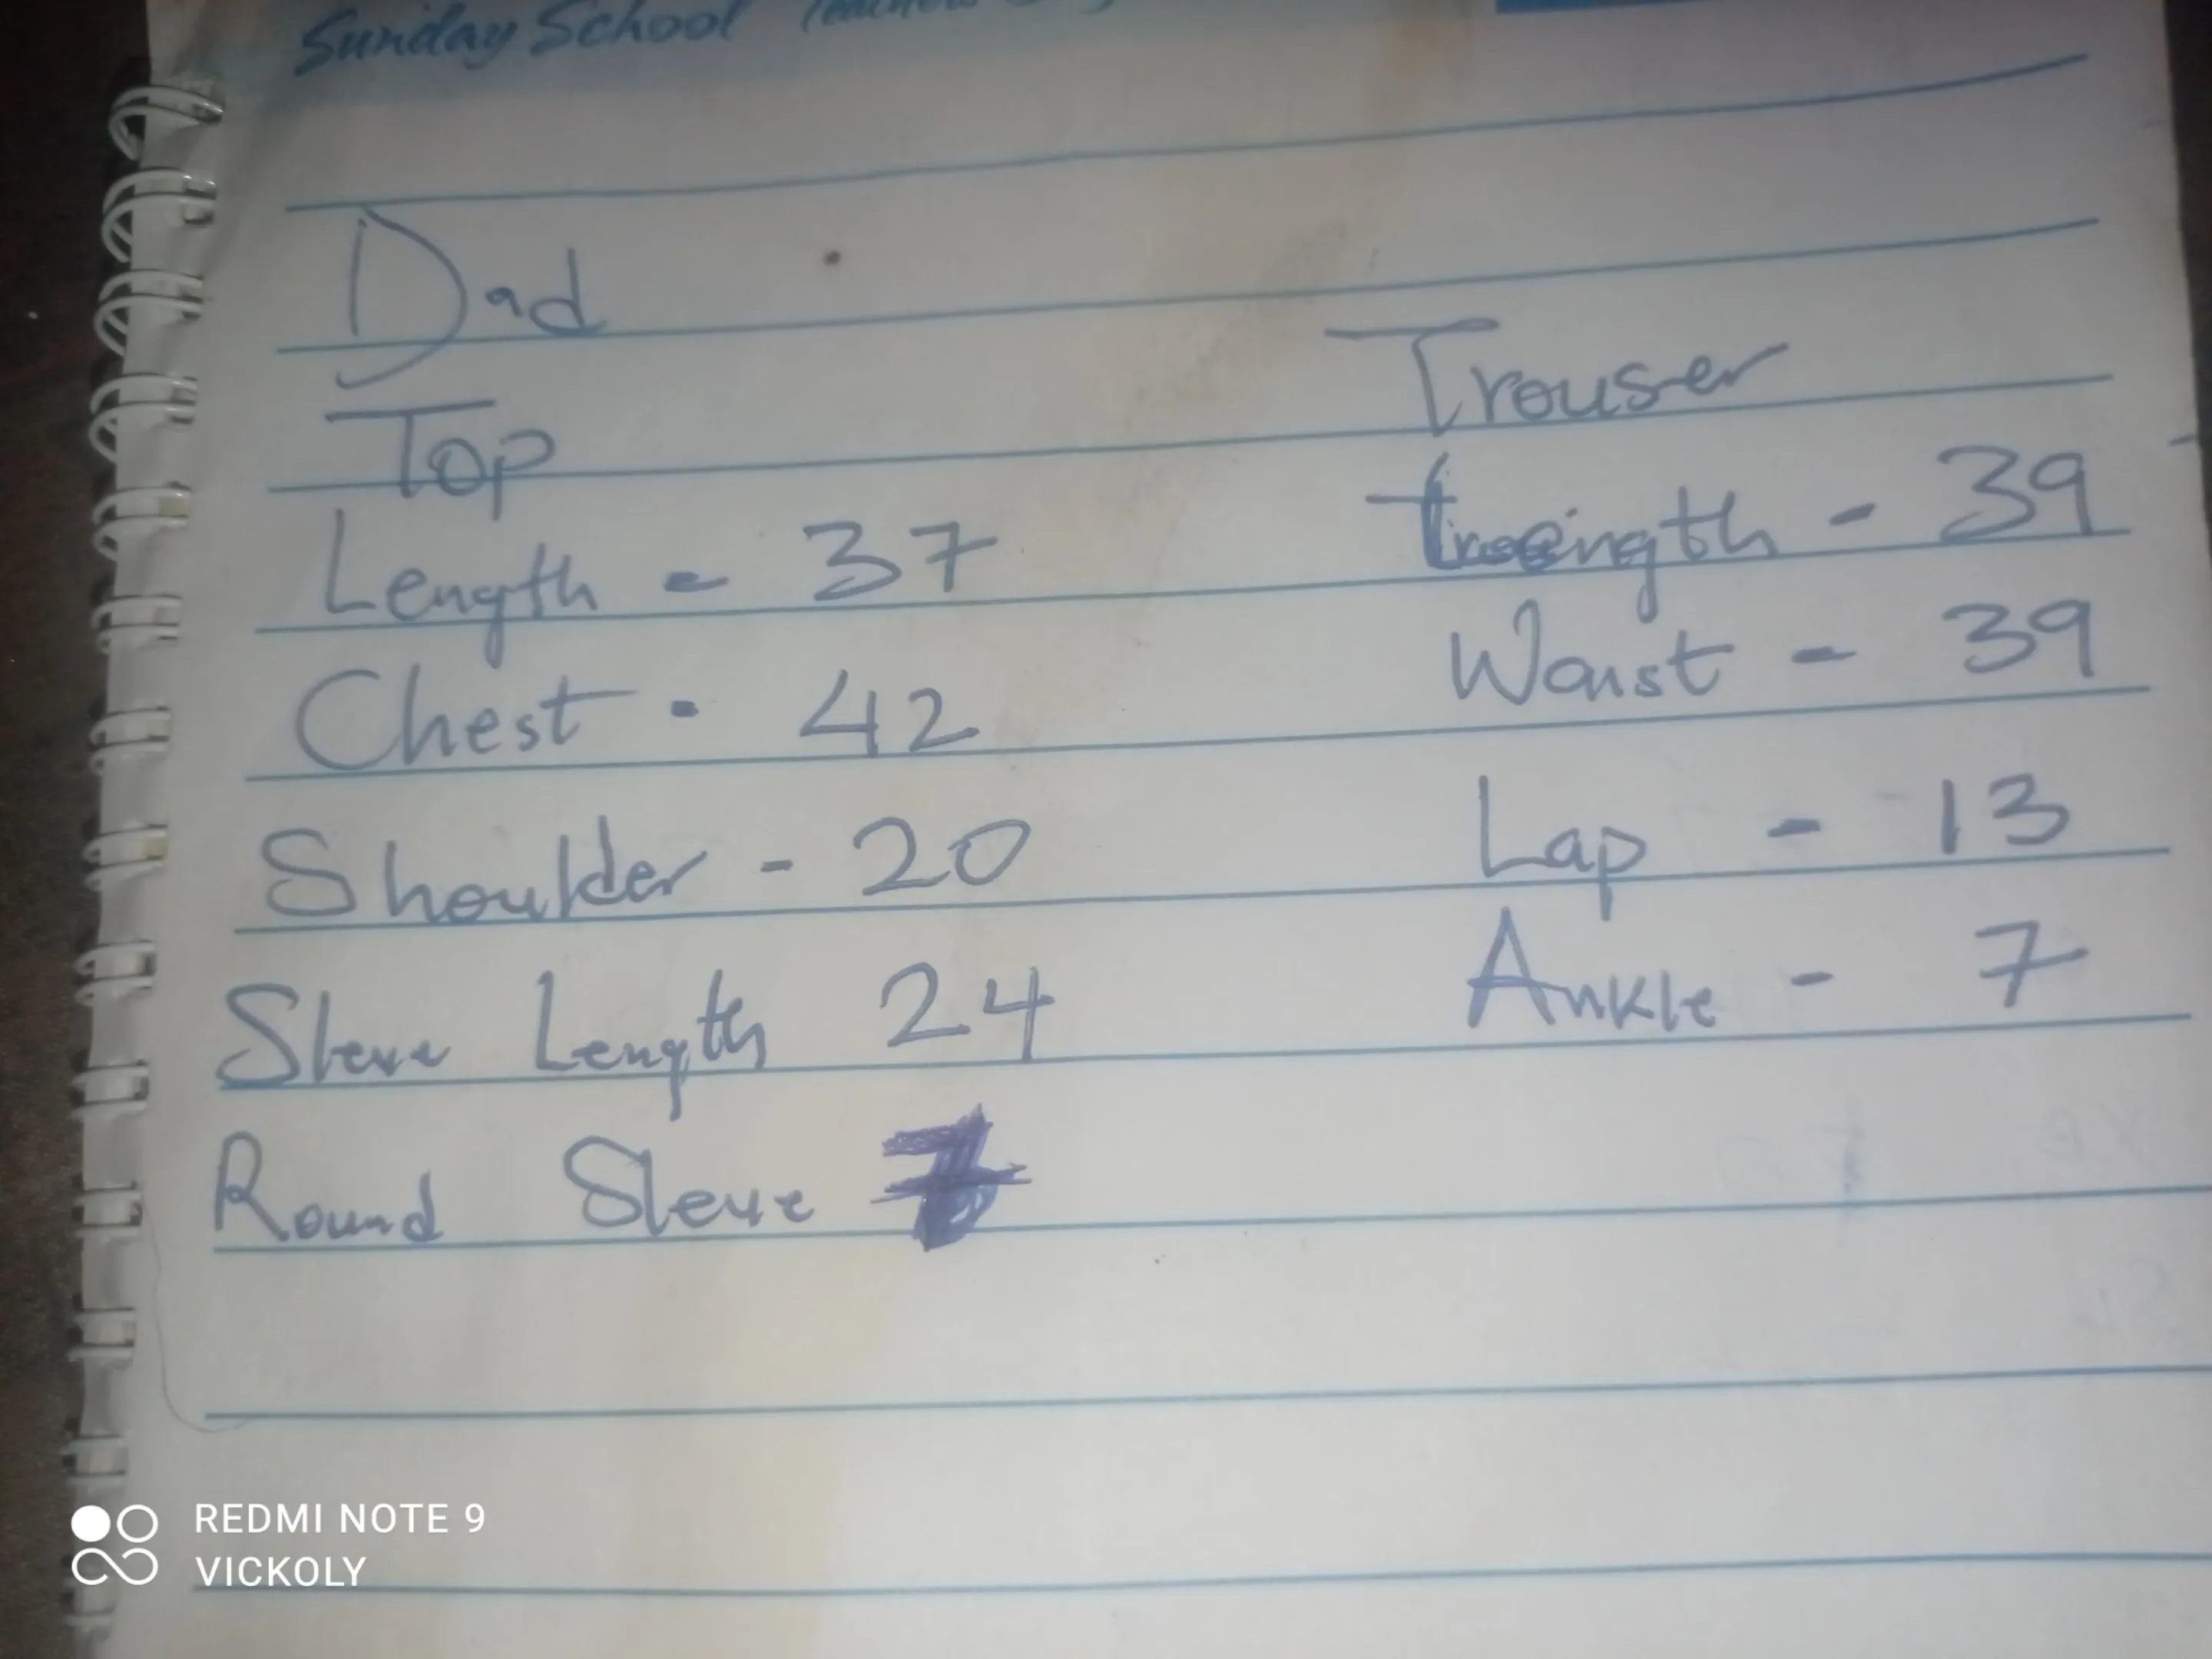 Sunday School Teachers
Dad
Top
Length - 37
Chest - 42
Shoulder - 20
Sleve Length 24
Round Sleve 7
Trouser
Length - 39
Waist - 39
Lap - 13
Ankle - 7
REDMI NOTE 9
VICKOLY